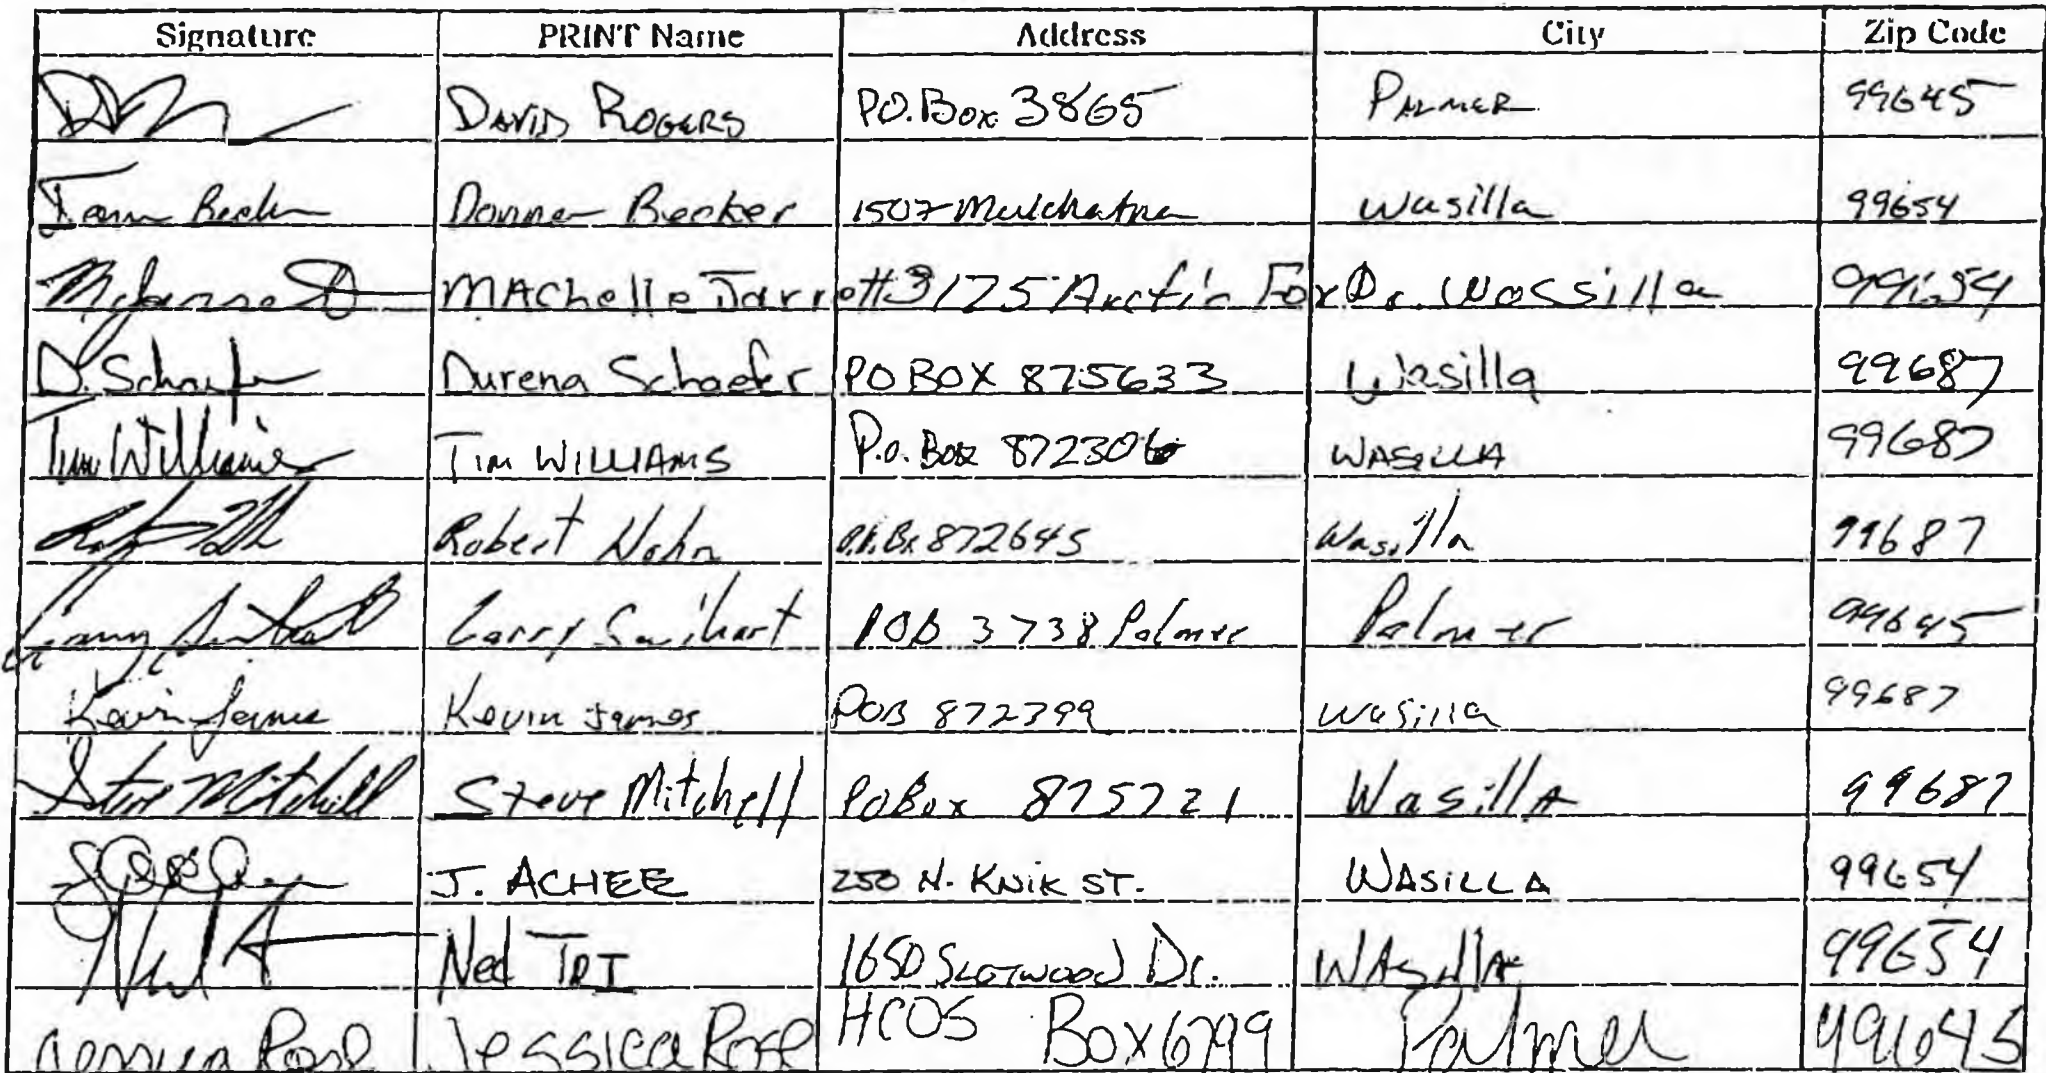 Signature PRINT Name Address City Zip Code
DAVID ROGERS P.O. Box 3865 PALMER 99645
Donna Becker 1507 Mulchatna Wasilla 99654
MAChelle Jarrett 3175 Arctic Fox Dr. Wassilla 99654
D. Schaefer Durena Schaefer PO BOX 875633 Wasilla 99687
Tim Williams TIM WILLIAMS P.O. Box 872306 WASILLA 99687
Robert Hahn 872645 Wasilla 99687
Larry Swihart Larry Swihart POB 3738 Palmer Palmer 99645
Kevin James Kevin James POB 872399 Wasilla 99687
Steve Mitchell Steve Mitchell PO Box 875721 WasillA 99687
J. ACHEE 250 N. KNIK ST. WASILLA 99654
Ned 1650 Dr. WAsillA 99654
Jessica Rose Jessica Rose HC05 Box 6799 Palmer 99645